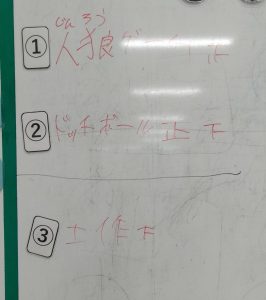 じんろう
① 人狼ゲーム
② ドッチボール 正 下
③ 工作 下